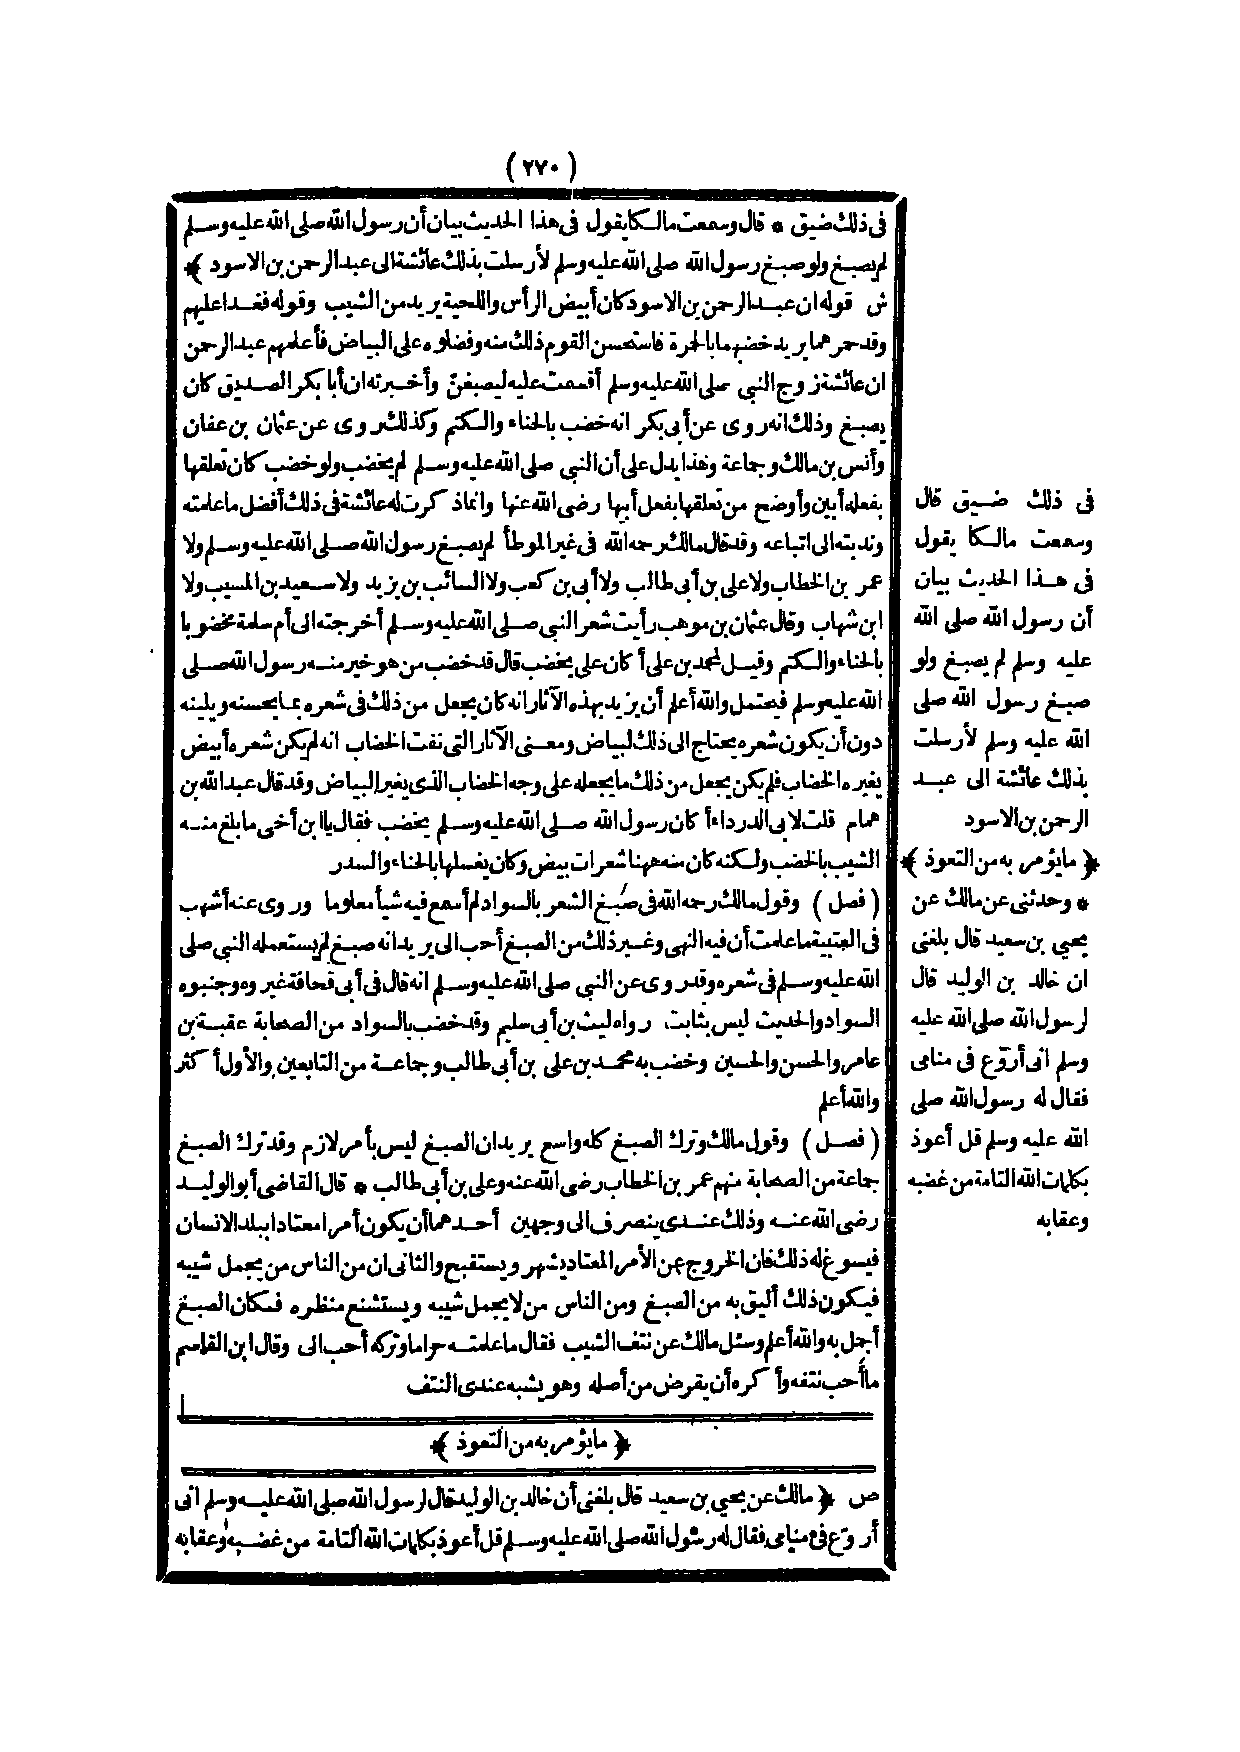 (٢٧٠)
فى ذلك ضيق * قال وسمعت مالكا يقول فى هذا الحديث بيان أن رسول الله صلى الله عليه وسلم
لم يصبغ ولو صبغ رسول الله صلى الله عليه وسلم لأرسلت بذلك عائشة الى عبد الرحمن بن الاسود ﴾
ش قوله ان عبد الرحمن بن الاسود كان أبيض الرأس واللحية يريد من الشيب وقوله فغدا عليهم
وقد حمرهما يريد خضبهما بالحمرة فاستحسن القوم ذلك منه وفضلوه على البياض فأعلمهم عبد الرحمن
ان عائشة زوج النبي صلى الله عليه وسلم أقسمت عليه ليصبغن وأخبرته ان أبا بكر الصديق كان
يصبغ وذلك انه روى عن أبى بكر انه خضب بالحناء والكتم وكذلك روى عن عثمان بن عفان
وأنس بن مالك وجماعة وهذا يدل على أن النبي صلى الله عليه وسلم لم يخضب ولو خضب كان تعلقها
بفعله أبين وأوضح من تعلقها بفعل أبيها رضى الله عنها وانما ذكرت له عائشة فى ذلك أفضل ما علمته
وندبته الى اتباعه وقد قال مالك رحمه الله فى غير الموطأ لم يصبغ رسول الله صلى الله عليه وسلم ولا
عمر بن الخطاب ولا على بن أبى طالب ولا أبى بن كعب ولا السائب بن يزيد ولا سعيد بن المسيب ولا
ابن شهاب وقال عثمان بن موهب رأيت شعر النبي صلى الله عليه وسلم أخرجته الى أم سلمة مخضوبا
بالحناء والكتم وقيل لمحمد بن على أكان على يخضب قال قد خضب من هو خير منه رسول الله صلى
الله عليه وسلم فيحتمل والله أعلم أن يريد بهذه الآثار انه كان يجعل من ذلك فى شعره بما يحسنه ويلينه
دون أن يكون شعره يحتاج الى ذلك لبياض ومعنى الآثار التى نفت الخضاب انه لم يكن شعره أبيض
يغيره الخضاب فلم يكن يجعل من ذلك ما يجعله على وجه الخضاب الذى يغير البياض وقد قال عبد الله بن
همام قلت لابى الدرداء أكان رسول الله صلى الله عليه وسلم يخضب فقال يا ابن أخى ما بلغ منه
الشيب بالخضب ولكنه كان منه ههنا شعرات بيض وكان يغسلها بالحناء والسدر
(فصل) وقول مالك رحمه الله فى صبغ الشعر بالسواد لم أسمع فيه شيأ معلوما وروى عنه أشهب
فى العتبية ما علمت أن فيه النهى وغير ذلك من الصبغ أحب الى يريد انه صبغ لم يستعمله النبي صلى
الله عليه وسلم فى شعره وقد روى عن النبي صلى الله عليه وسلم انه قال فى أبى قحافة غيروه وجنبوه
السواد والحديث ليس بثابت رواه ليث بن أبى سليم وقد خضب بالسواد من الصحابة عقبة بن
عامر والحسن والحسين وخضب به محمد بن على بن أبى طالب وجماعة من التابعين والأول أكثر
والله أعلم
(فصل) وقول مالك وترك الصبغ كله واسع يريد ان الصبغ ليس بأمر لازم وقد ترك الصبغ
جماعة من الصحابة منهم عمر بن الخطاب رضى الله عنه وعلى بن أبى طالب * قال القاضى أبو الوليد
رضى الله عنه وذلك عندى ينصرف الى وجهين أحدهما أن يكون أمرا معتادا ببلد الانسان
فيسوغ له ذلك فان الخروج عن الأمر المعتاد يشهر ويستقبح والثانى ان من الناس من يجمل شيبه
فيكون ذلك أليق به من الصبغ ومن الناس من لا يجمل شيبه ويستشنع منظره فكان الصبغ
أجمل به والله أعلم وسئل مالك عن نتف الشيب فقال ما علمته حراما وتركه أحب الى وقال ابن القاسم
ما أحب نتفه وأكره أن يقرض من أصله وهو يشبه عندى النتف
﴿ ما يؤمر به من التعوذ ﴾
ص ﴿ مالك عن يحيى بن سعيد قال بلغنى أن خالد بن الوليد قال لرسول الله صلى الله عليه وسلم انى
أروّع فى منامى فقال له رسول الله صلى الله عليه وسلم قل أعوذ بكلمات الله التامة من غضبه وعقابه
فى ذلك ضيق قال
وسمعت مالكا يقول
فى هذا الحديث بيان
أن رسول الله صلى الله
عليه وسلم لم يصبغ ولو
صبغ رسول الله صلى
الله عليه وسلم لأرسلت
بذلك عائشة الى عبد
الرحمن بن الاسود
﴿ ما يؤمر به من التعوذ ﴾
* وحدثنى عن مالك عن
يحيى بن سعيد قال بلغنى
ان خالد بن الوليد قال
لرسول الله صلى الله عليه
وسلم انى أروّع فى منامى
فقال له رسول الله صلى
الله عليه وسلم قل أعوذ
بكلمات الله التامة من غضبه
وعقابه